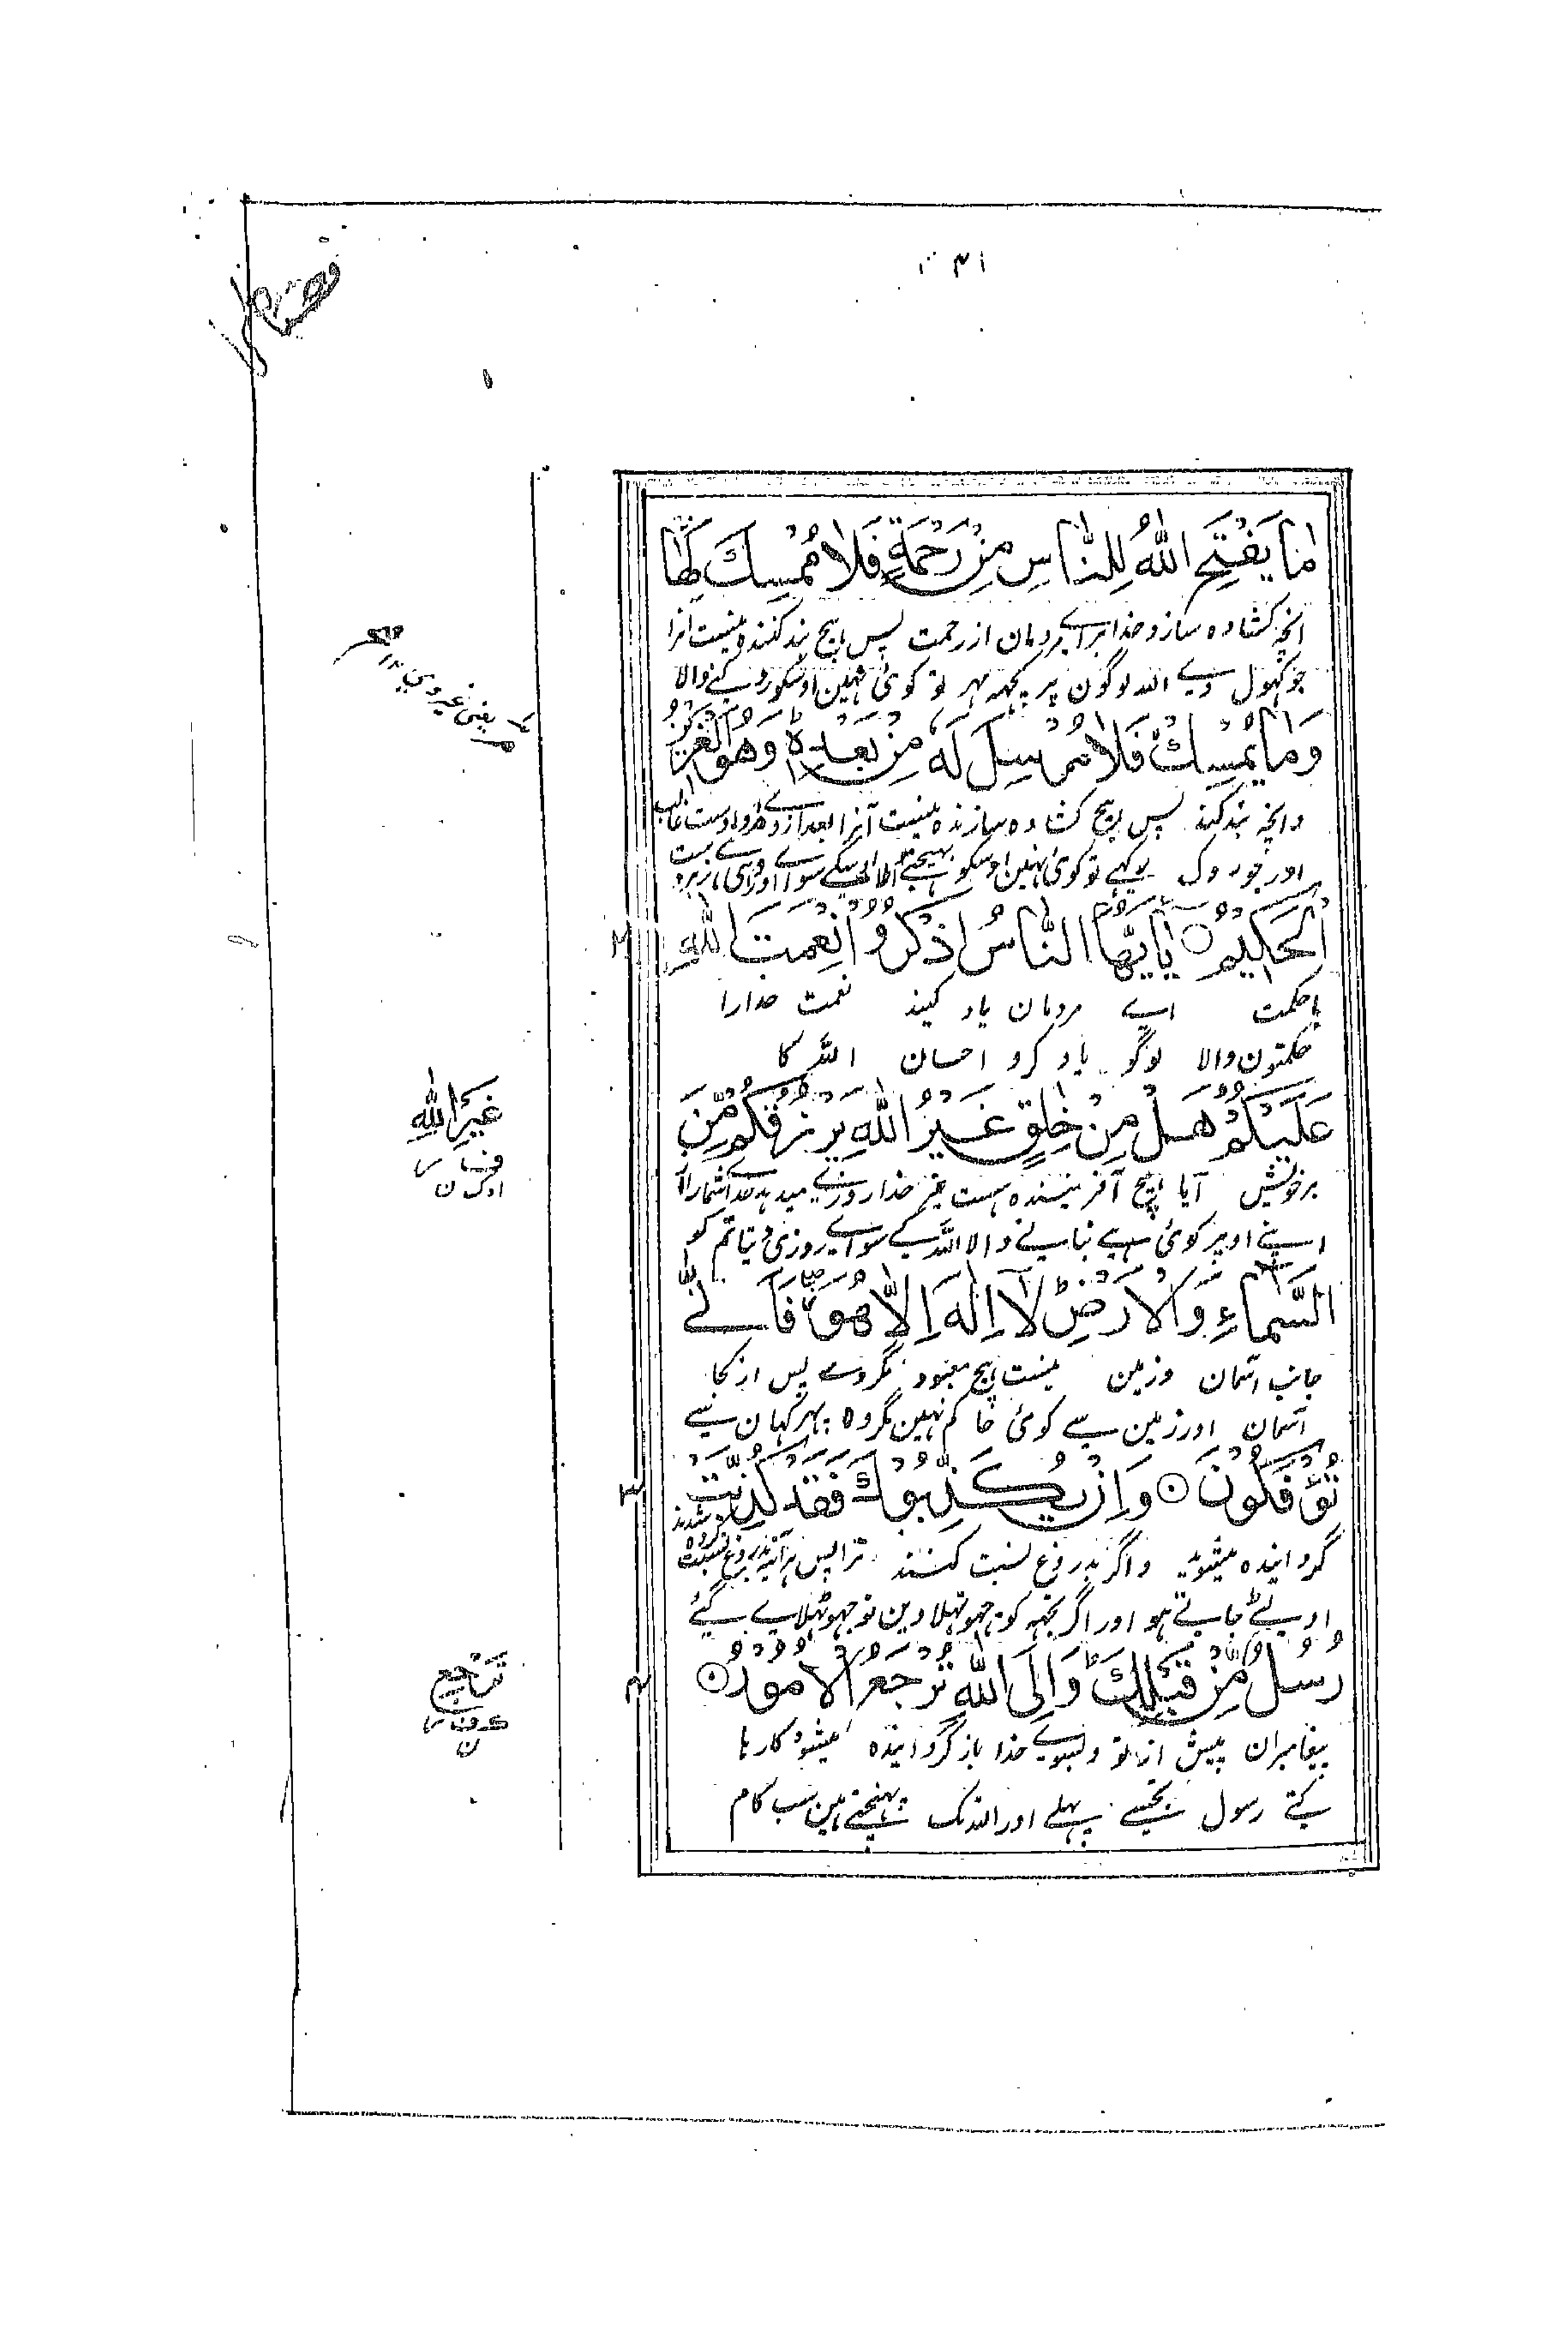 مَا يَفْتَحِ اللّٰهُ لِلنَّاسِ مِنْ رَحْمَةٍ فَلَا مُمْسِكَ لَهَا
انچہ کشادہ سازد خدا برای مردمان از رحمت پس ہیچ بند کنندہ نیست آنرا
جو کہول دے اللہ لوگون پر کچھہ مہر تو کوئی نہین اوسکو روکنے والا
وَمَا يُمْسِكْ فَلَا مُرْسِلَ لَهٗ مِنْ بَعْدِهٖ وَهُوَ الْعَزِيْزُ
وانچہ بند کند پس ہیچ کشادہ سازندہ نیست آنرا بعد ازوے واوست غالب
اور جو روک رکھے تو کوئی نہین اوسکو بھیجنے والا اسکے سواے اور وہی ہے زبردست
الْحَكِيْمُ يٰاَيُّهَا النَّاسُ اذْكُرُوْا نِعْمَتَ اللّٰهِ
باحکمت اے مردمان یاد کنید نعمت خدارا
حکمتون والا لوگو یاد کرو احسان اللہ کا
عَلَيْكُمْ هَلْ مِنْ خَالِقٍ غَيْرُ اللّٰهِ يَرْزُقُكُمْ مِّنَ
برخویش آیا ہیچ آفرینندہ ہست غیر خدا روزی میدہد شمارا
اپنے اوپر کوئی ہے بنانے والا اللہ کے سواے روزی دیتا تم کو
السَّمَاءِ وَالْاَرْضِ لَا اِلٰهَ اِلَّا هُوَ فَاَنّٰى
جانب آسمان وزمین نیست ہیچ معبود مگر وے پس از کجا
آسمان اور زمین سے کوئی حاکم نہین مگر وہ پہر کہان سے
تُؤْفَكُوْنَ وَاِنْ يُّكَذِّبُوْكَ فَقَدْ كُذِّبَتْ
گردانیدہ میشوید واگر بدروغ نسبت کنند ترا پس ہر آئینہ بدروغ نسبت کردہ شدند
اولٹے جاتے ہو اور اگر تجھہ کو جھوٹھلاوین تو جھوٹھلاے گئے
رُسُلٌ مِّنْ قَبْلِكَ وَاِلَى اللّٰهِ تُرْجَعُ الْاُمُوْرُ
پیغامبران پیش از تو وبسوے خدا باز گردانیدہ میشود کارہا
کتے رسول تجھسے پہلے اور اللہ تک پہنچتے ہین سب کام
غَيْرِ اللّٰهِ
تَرْجِع